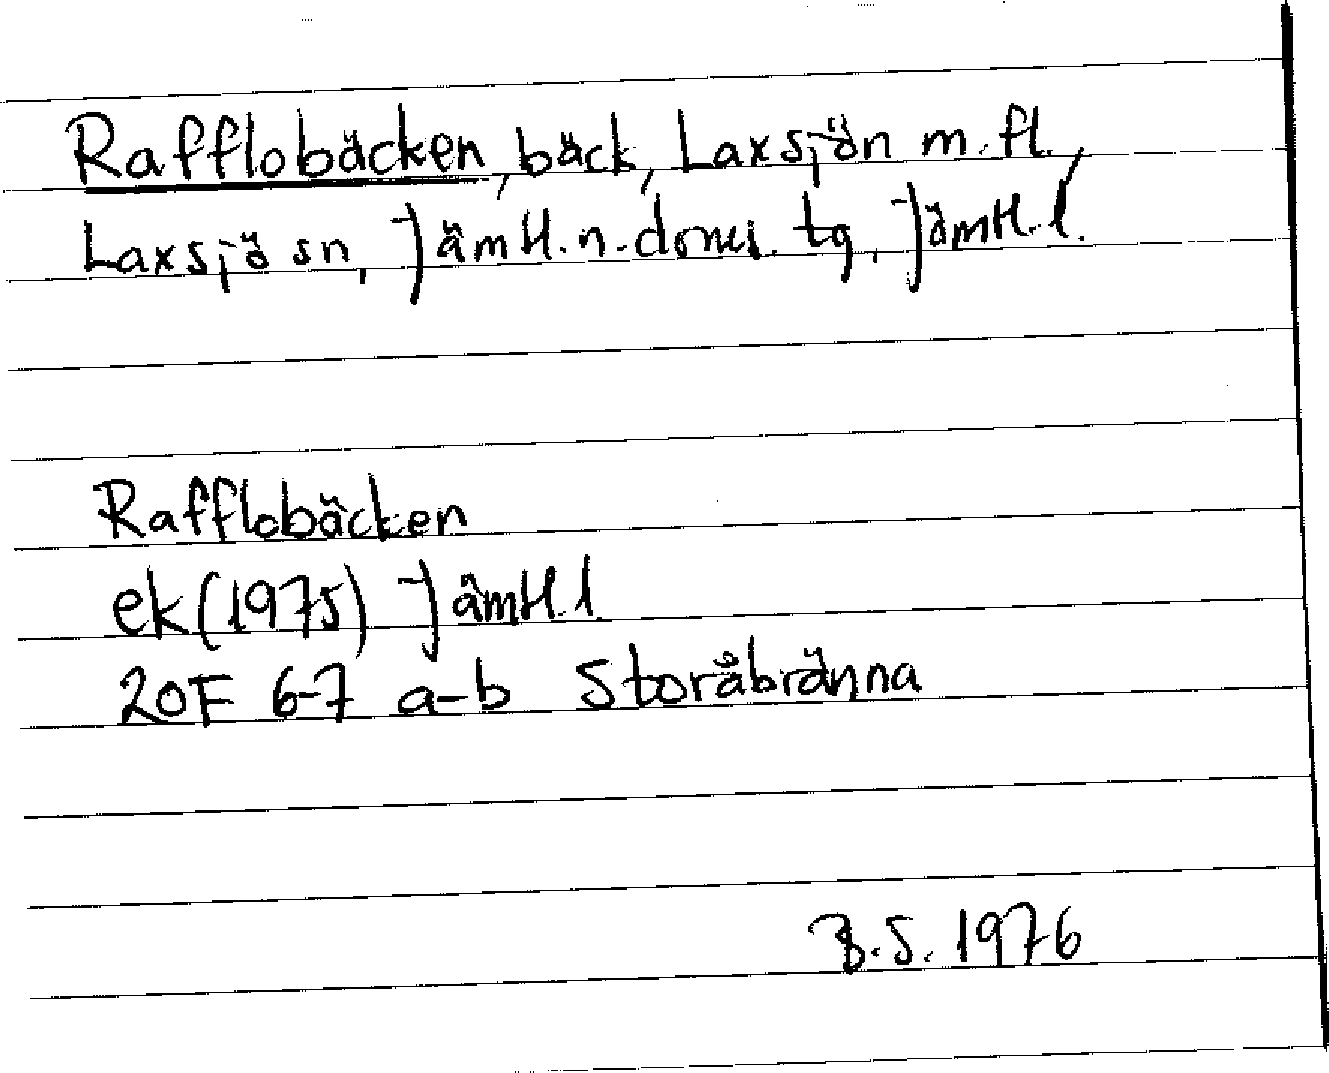 Rafflobäcken, bäck, Laxsjön m. fl.,
Laxsjö sn, Jämtl. n. doms. tg, Jämtl. l.
Rafflobäcken
ek (1975) Jämtl. l.
20F 6-7 a-b Storåbränna
B.S. 1976